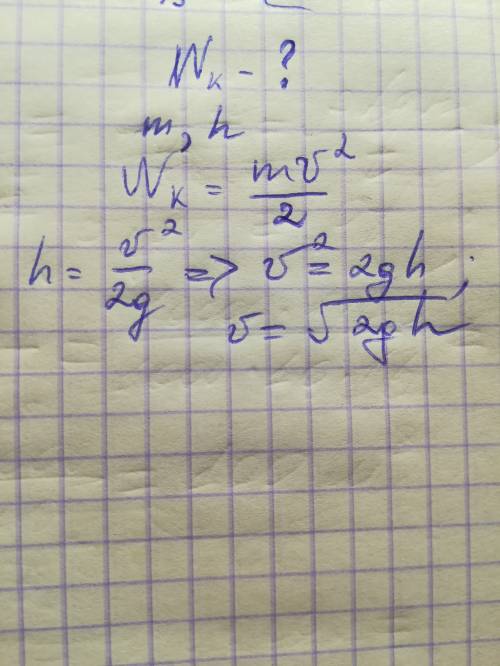 Wₖ - ?
m, h
Wₖ = mv²/2
h = v²/2g => v² = 2gh;
v = √2gh